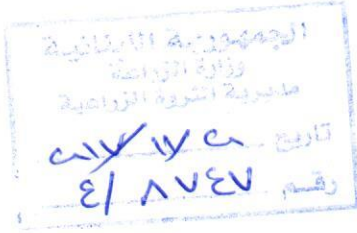 الجمهورية اللبنانية
وزارة الزراعة
مديرية الثروة الزراعية
تاريخ
رقم ٨٧٤٧ /٤